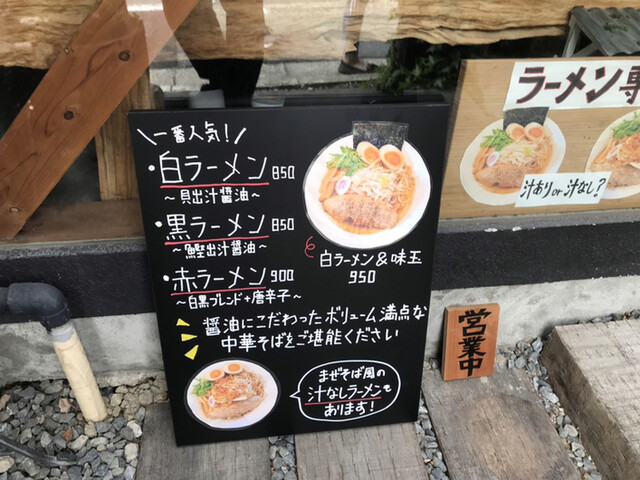 一番人気!
・白ラーメン 850
~貝出汁醤油~
・黒ラーメン 850
~鰹出汁醤油~
・赤ラーメン 900
~白黒ブレンド+唐辛子~
白ラーメン&味玉
950
醤油にこだわったボリューム満点な
中華そばをご堪能ください
まぜそば風の
汁なしラーメンも
あります!
ラーメン専
汁ありor汁なし?
営業中